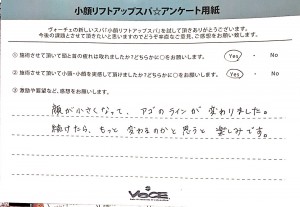 小顔リフトアップスパ☆アンケート用紙
ヴォーチェの新しいスパ「小顔リフトアップスパ」を試して頂きありがとうございます。
今後の課題とさせて頂きたいと思いますのでどうぞ率直なご意見、ご感想をお願い致します。
① 施術させて頂いて肩と首の疲れは取れましたか?どちらかに○をお願いします。
Yes ・ No
② 施術させて頂いて小顔・小顔を実感して頂けましたか?どちらかに○をお願いします。
Yes ・ No
③ 激励や要望など、感想をお願い致します。
顔が小さくなって、アゴのラインが変わりました。
続けたら、もっと変わるのかと思うと楽しみです。
VOCE